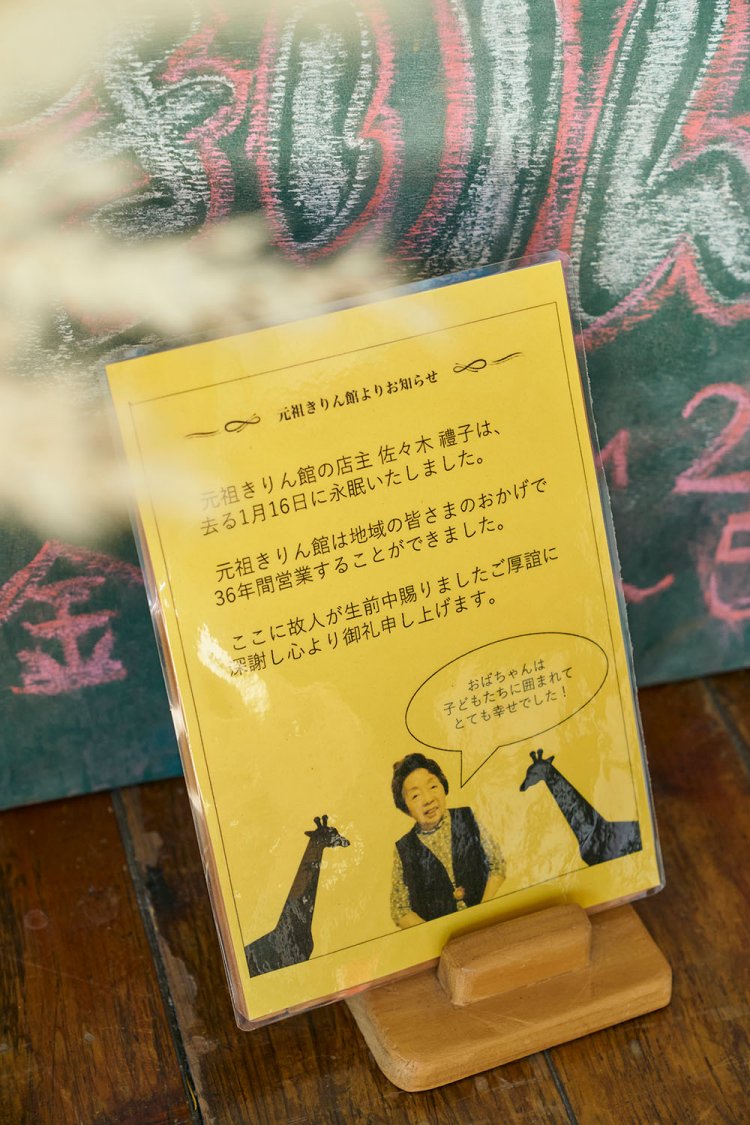 元祖きりん館よりお知らせ
元祖きりん館の店主 佐々木 禮子は、
去る1月16日に永眠いたしました。
元祖きりん館は地域の皆さまのおかげで
36年間営業することができました。
ここに故人が生前中賜りましたご厚誼に
深謝し心より御礼申し上げます。
おばちゃんは
子どもたちに囲まれて
とても幸せでした！
金
2